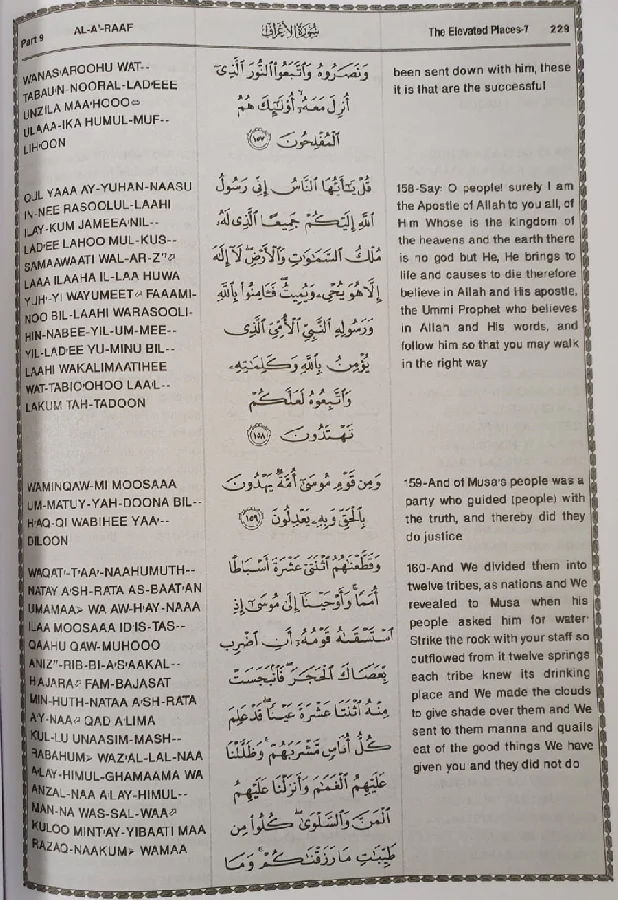 Part 9
AL-A'-RAAF
سُورَةُ الأَعْرَافِ
The Elevated Places-7
229
WANAS'AROOHU WAT--
TABAU'N-NOORAL-LAD'EEE
UNZILA MAA'HOOO
ULAAA-IKA HUMUL-MUF--
LIH'OON
وَنَصَرُوهُ وَٱتَّبَعُوا۟ ٱلنُّورَ ٱلَّذِىٓ
أُنزِلَ مَعَهُۥٓ أُو۟لَـٰٓئِكَ هُمُ
ٱلْمُفْلِحُونَ ١٥٧
been sent down with him, these
it is that are the successful
QUL YAAA AY-YUHAN-NAASU
IN-NEE RASOOLUL-LAAHI
ILAY-KUM JAMEEA'NIL--
LAD'EE LAHOO MUL-KUS--
SAMAAWAATI WAL-AR-Z''
LAAA ILAAHA IL-LAA HUWA
YUH'-YI WAYUMEET FAAAMI-
NOO BIL-LAAHI WARASOOLI-
HIN-NABEE-YIL-UM-MEE--
YIL-LAD'EE YU-MINU BIL--
LAAHI WAKALIMAATIHEE
WAT-TABIO'OHOO LAAL--
LAKUM TAH-TADOON
قُلْ يَـٰٓأَيُّهَا ٱلنَّاسُ إِنِّى رَسُولُ
ٱللَّهِ إِلَيْكُمْ جَمِيعًا ٱلَّذِى لَهُۥ
مُلْكُ ٱلسَّمَـٰوَٰتِ وَٱلْأَرْضِ لَآ إِلَـٰهَ
إِلَّا هُوَ يُحْىِۦ وَيُمِيتُ فَـَٔامِنُوا۟ بِٱللَّهِ
وَرَسُولِهِ ٱلنَّبِىِّ ٱلْأُمِّىِّ ٱلَّذِى
يُؤْمِنُ بِٱللَّهِ وَكَلِمَـٰتِهِۦ
وَٱتَّبِعُوهُ لَعَلَّكُمْ
تَهْتَدُونَ ١٥٨
158-Say: O people! surely I am
the Apostle of Allah to you all, of
Him Whose is the kingdom of
the heavens and the earth there
is no god but He, He brings to
life and causes to die therefore
believe in Allah and His apostle,
the Ummi Prophet who believes
in Allah and His words, and
follow him so that you may walk
in the right way
WAMINQAW-MI MOOSAAA
UM-MATUY-YAH-DOONA BIL--
H'AQ-QI WABIHEE YAA'--
DILOON
وَمِن قَوْمِ مُوسَىٰٓ أُمَّةٌ يَهْدُونَ
بِٱلْحَقِّ وَبِهِۦ يَعْدِلُونَ ١٥٩
159-And of Musa's people was a
party who guided (people) with
the truth, and thereby did they
do justice
WAQAT'-T'AA'-NAAHUMUTH--
NATAY A'SH-RATA AS-BAAT'AN
UMAMAA WA AW-H'AY-NAAA
ILAA MOOSAAA ID'IS-TAS--
QAAHU QAW-MUHOOO
ANIZ''-RIB-BI-A'S'AAKAL--
H'AJARA FAM-BAJASAT
MIN-HUTH-NATAA A'SH-RATA
A'Y-NAA QAD A'LIMA
KUL-LU UNAASIM-MASH--
RABAHUM WAZ'AL-LAL-NAA
A'LAY-HIMUL-GHAMAAMA WA
ANZAL-NAA A'LAY-HIMUL--
MAN-NA WAS-SAL-WAA
KULOO MINT'AY-YIBAATI MAA
RAZAQ-NAAKUM WAMAA
وَقَطَّعْنَـٰهُمُ ٱثْنَتَىْ عَشْرَةَ أَسْبَاطًا
أُمَمًا وَأَوْحَيْنَآ إِلَىٰ مُوسَىٰٓ إِذِ
ٱسْتَسْقَىٰهُ قَوْمُهُۥٓ أَنِ ٱضْرِب
بِّعَصَاكَ ٱلْحَجَرَ فَٱنۢبَجَسَتْ
مِنْهُ ٱثْنَتَا عَشْرَةَ عَيْنًا قَدْ عَلِمَ
كُلُّ أُنَاسٍ مَّشْرَبَهُمْ وَظَلَّلْنَا
عَلَيْهِمُ ٱلْغَمَـٰمَ وَأَنزَلْنَا عَلَيْهِمُ
ٱلْمَنَّ وَٱلسَّلْوَىٰ كُلُوا۟ مِن
طَيِّبَـٰتِ مَا رَزَقْنَـٰكُمْ وَمَا
160-And We divided them into
twelve tribes, as nations and We
revealed to Musa when his
people asked him for water·
Strike the rock with your staff so
outflowed from it twelve springs
each tribe knew its drinking
place and We made the clouds
to give shade over them and We
sent to them manna and quails
eat of the good things We have
given you and they did not do